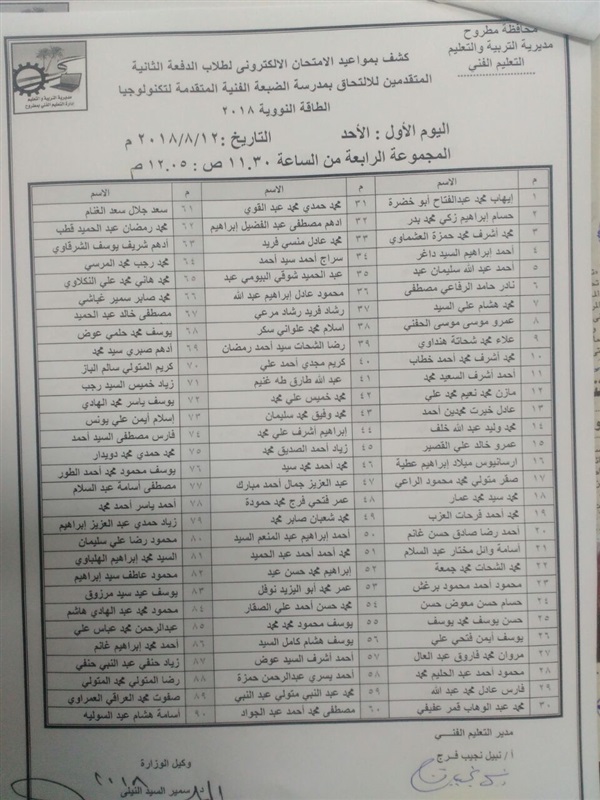 محافظة مطروح
مديرية التربية والتعليم
التعليم الفني
مديرية التربية والتعليم
إدارة التعليم الفني بمطروح
كشف بمواعيد الامتحان الالكترونى لطلاب الدفعة الثانية
المتقدمين للالتحاق بمدرسة الضبعة الفنية المتقدمة لتكنولوجيا
الطاقة النووية ٢٠١٨
اليوم الأول : الأحد التاريخ : ٢٠١٨/٨/١٢ م
المجموعة الرابعة من الساعة ١١.٣٠ ص : ١٢.٠٥ م
م الاسم م الاسم م الاسم
١ إيهاب محمد عبدالفتاح أبو خضرة ٣١ محمد حمدي محمد عبد القوي ٦١ سعد جلال سعد الغنام
٢ حسام إبراهيم زكي محمد بدر ٣٢ أدهم مصطفى عبد الفضيل إبراهيم ٦٢ محمد رمضان عبد الحميد قطب
٣ محمد أشرف محمد حمزة العشماوي ٣٣ محمد عادل منسي فريد ٦٣ أدهم شريف يوسف الشرقاوي
٤ أحمد إبراهيم السيد داغر ٣٤ سراج أحمد سيد أحمد ٦٤ محمد رجب محمد المرسي
٥ أحمد عبد الله سليمان عبد ٣٥ عبد الحميد شوقي البيومي عبد ٦٥ محمد هاني محمد علي التكلاوي
٦ نادر حامد الرفاعي مصطفى ٣٦ محمود عادل إبراهيم عبد الله ٦٦ محمد صابر سمير غباشي
٧ محمد هشام علي السيد ٣٧ رشاد فريد رشاد مرعي ٦٧ مصطفى خالد عبد الحميد
٨ عمرو موسى موسى الحفني ٣٨ إسلام محمد علواني سكر ٦٨ يوسف محمد حلمي عوض
٩ علاء محمد شحاتة هنداوي ٣٩ رضا الشحات سيد أحمد رمضان ٦٩ أدهم صبري سيد محمد
١٠ محمد أشرف محمد أحمد خطاب ٤٠ كريم مجدي أحمد علي ٧٠ كريم المتولي سالم الباز
١١ أحمد أشرف السعيد محمد ٤١ عبد الله طارق طه غنيم ٧١ زياد خميس السيد رجب
١٢ مازن محمد نعيم محمد علي ٤٢ محمد خميس علي محمد ٧٢ يوسف ياسر محمد الهادي
١٣ عادل خيرت محمدين أحمد ٤٣ محمد وفيق محمد سليمان ٧٣ إسلام أيمن علي يونس
١٤ محمد وليد عبد الله خلف ٤٤ إبراهيم أشرف علي محمد ٧٤ فارس مصطفى السيد أحمد
١٥ عمرو خالد علي القصير ٤٥ زياد أحمد الصديق محمد ٧٥ محمد حمدي محمد دويدار
١٦ ارسانيوس ميلاد إبراهيم عطية ٤٦ محمد أحمد محمد سيد ٧٦ يوسف محمود محمد أحمد الطور
١٧ صقر متولي محمد محمود الراعي ٤٧ عبد العزيز جمال أحمد مبارك ٧٧ مصطفى أسامة عبد السلام
١٨ محمد سيد محمد عمار ٤٨ عمر فتحي فرج محمد حمودة ٧٨ أحمد ياسر أحمد محمد
١٩ محمد أحمد فرحات العزب ٤٩ محمد شعبان صابر محمد ٧٩ زياد حمدي عبد العزيز إبراهيم
٢٠ أحمد رضا صادق حسن غانم ٥٠ أحمد إبراهيم عبد المنعم السيد ٨٠ محمود رضا علي سليمان
٢١ أسامة وائل مختار عبد السلام ٥١ محمد أحمد أحمد عبد الحميد ٨١ السيد محمد إبراهيم الهلباوي
٢٢ محمد الشحات محمد جمعة ٥٢ إبراهيم محمد حسن عيد ٨٢ محمود عاطف سيد إبراهيم
٢٣ محمود أحمد محمود برغش ٥٣ عمر محمد أبو اليزيد نوفل ٨٣ يوسف عبد سيد مرزوق
٢٤ حسام حسن معوض حسن ٥٤ محمد حسن أحمد علي الصقار ٨٤ محمود محمد عبد الهادي هاشم
٢٥ حسن يوسف محمد يوسف ٥٥ يوسف محمود محمد محمد ٨٥ عبدالرحمن محمد عباس علي
٢٦ يوسف أيمن فتحي علي ٥٦ يوسف هشام كامل السيد ٨٦ أحمد محمد إبراهيم غانم
٢٧ مروان محمد فاروق عبد العال ٥٧ أحمد أشرف السيد عوض ٨٧ زياد حنفي عبد النبي حنفي
٢٨ محمود أحمد عبد الحليم محمد ٥٨ أحمد يسري عبدالرحمن حمزة ٨٨ رضا المتولي محمد المتولي
٢٩ فارس عادل محمد عبد الله ٥٩ محمد عبد النبي متولي عبد النبي ٨٩ صفوت محمد العراقي العمراوي
٣٠ محمد عبد الوهاب قمر عفيفي ٦٠ مصطفى محمد أحمد عبد الجواد ٩٠ أسامة هشام عبد السوليه
مدير التعليم الفني
أ / نبيل نجيب فرج
وكيل الوزارة
سمير السيد النيلى